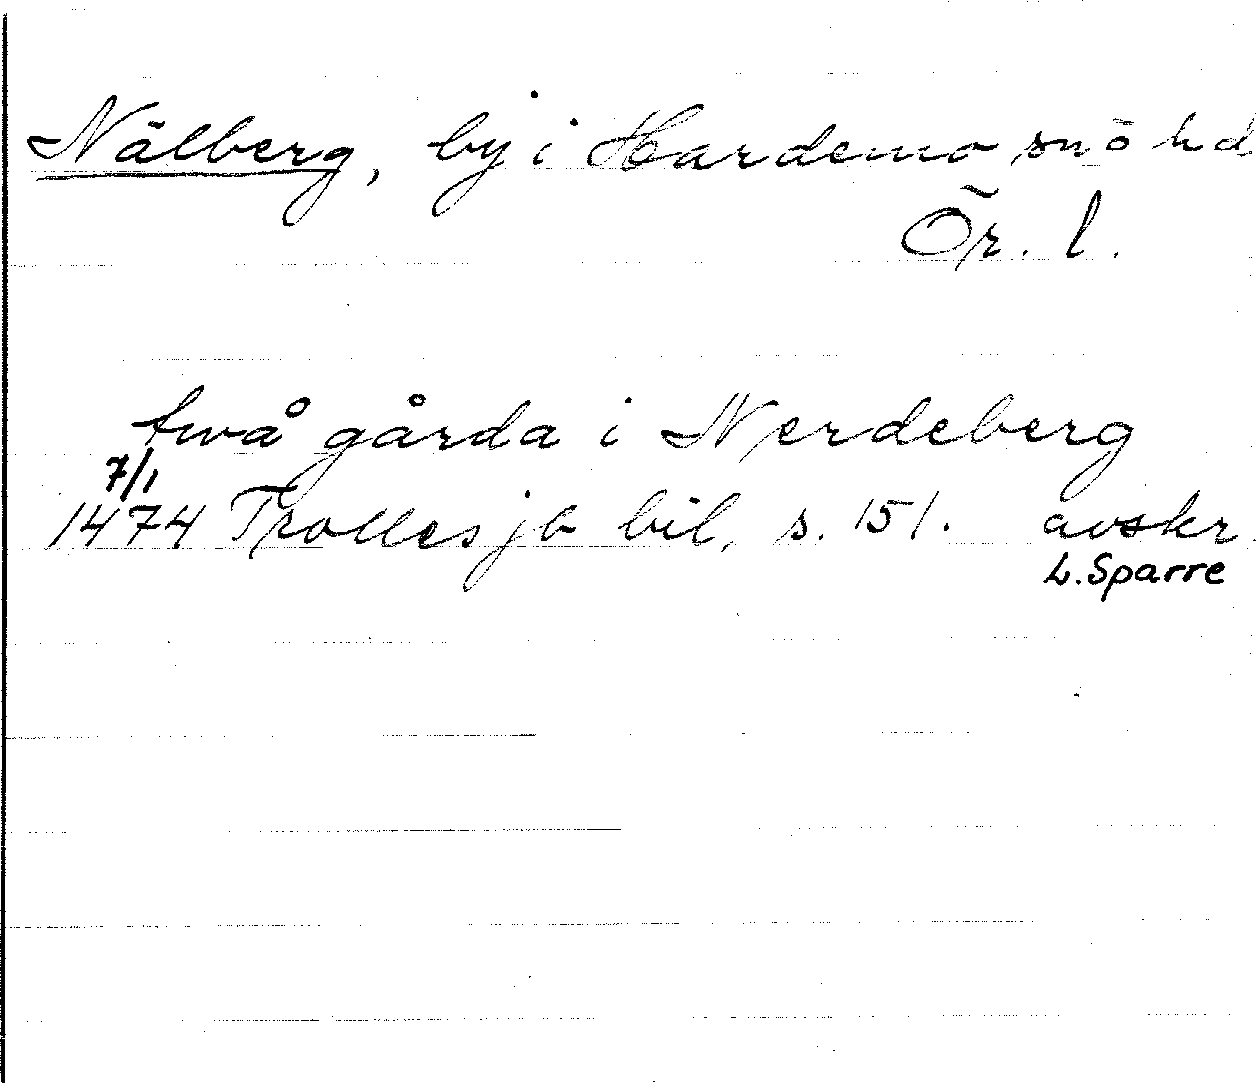 Nälberg, by i Hardemo sn ö hd
Ör. l.
två gårda i Nerdeberg
7/1
1474 Trolles jb bil. s. 151. avskr.
L. Sparre